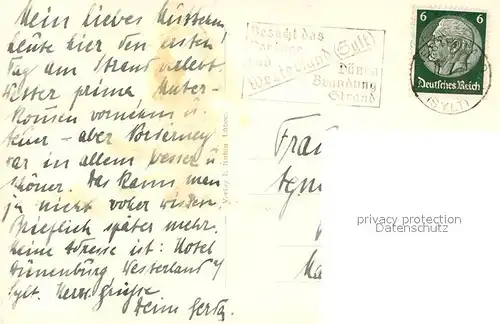 Mein liebes Mütterlein,
heute hier den ersten
Tag am Strand verlebt.
Wetter prima Unter-
kommen vornehm u.
teuer – aber Norderney
war in allem besser u
schöner. Das kann man
ja nicht vorher wissen.
Brieflich später mehr.
Meine Adresse ist: Hotel
Dünenburg Westerland a/
Sylt. Herzl. Grüße
Deine Gertr.
Besucht das
Nordseebad
Westerland (Sylt)
Dünen
Brandung
Strand
6 6
Deutsches Reich
(SYLT)
Frau
Agn
Ma
privacy protection
Datenschutz